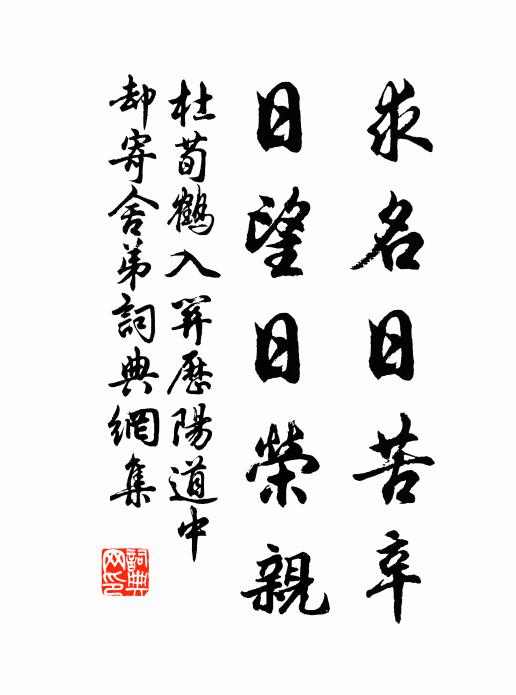 求名日苦辛
日望日榮親
杜荀鶴入關歷陽道中
却寄舍弟詞典網集
詞典網印